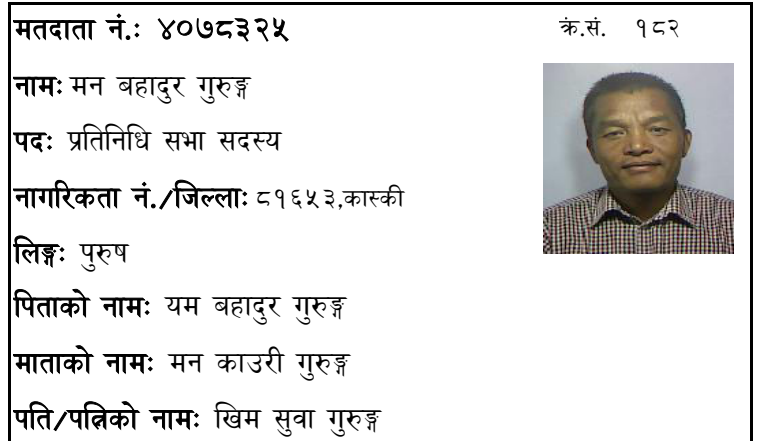 मतदाता नं.: ४०७८३२५
क्रं.सं. १८२
नामः मन बहादुर गुरुङ्ग
पदः प्रतिनिधि सभा सदस्य
नागरिकता नं./जिल्लाः ८१६५३,कास्की
लिङ्गः पुरुष
पिताको नामः यम बहादुर गुरुङ्ग
माताको नामः मन काउरी गुरुङ्ग
पति/पत्निको नामः खिम सुवा गुरुङ्ग